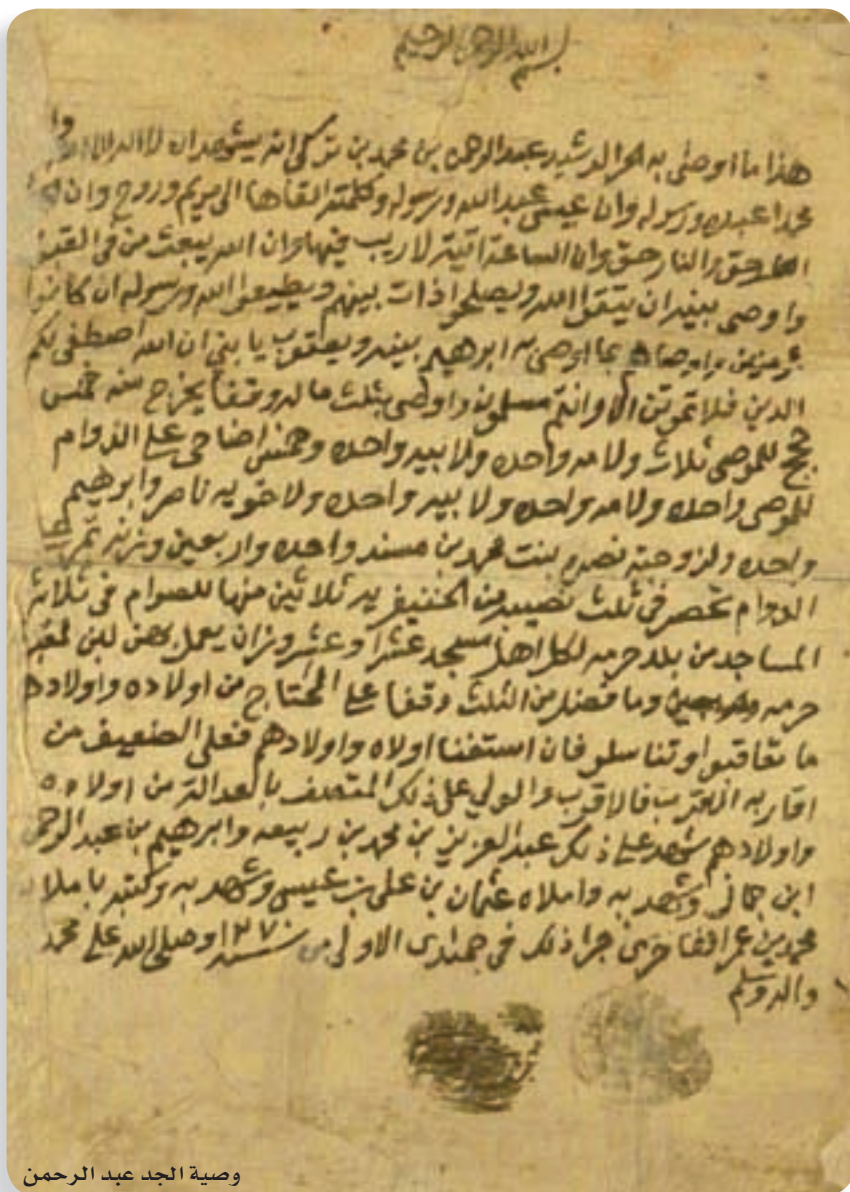 بسم الله الرحمن الرحيم
هذا ما اوصى به الحر الرشيد عبدالرحمن بن محمد بن تركي انه يشهد ان لا اله الا الله وا
محمدا عبده ورسوله وان عيسى عبد الله ورسوله وكلمته القاها الى مريم وروح وان
حق والنار حق وان الساعة اتية لا ريب فيها وان الله يبعث من في القبور
واوصى بنيه ان يتقوا الله ويصلحوا ذات بينهم ويطيعوا الله ورسوله ان كانوا
مومنين واوصاهم بما اوصى به ابرهيم بنيه ويعقوب يا بني ان الله اصطفى لكم
الدين فلا تموتن الا وانتم مسلمون واوصى بثلث ماله وقفا يخرج منه خمس
حجج للموصى ثلاث ولامه واحده ولابيه واحده وخمس اضاحي على الدوام
للموصى واحده ولامه واحده ولابيه واحده ولاخويه ناصر وابرهيم
واحده ولزوجته بنت محمد بن مسند واحده واربعين وزنة تمر على
الدوام في ثلث نصيبه من ثلاثين منها للصوام في ثلاثة
المساجد من بلد حرمه لكل اهل مسجد عشرا وعشر وزان يعمل بهن لبن لمقبرة
حرمه وما فضل من الثلث وقفا على المحتاج من اولاده واولادهم
ما تعاقبوا وتناسلو فان استغنا اولاه واولادهم فعلى الضعيف من
اقاربه الاقرب فالاقرب والولي على ذلك المتصف بالعدالة من اولاده
واولادهم شهد على ذلك عبدالعزيز بن محمد بن ربيعه وابرهيم بن عبدالرحمن
ابن وشهد به واملاه عثمان بن علي بن عيسى وشهد به وكتبه باملاه
محمد بن عمر الفاخري جرا ذلك في جمادى الاولى من سنة ١٢٧٠ وصلى الله على محمد
واله وسلم
وصية الجد عبد الرحمن